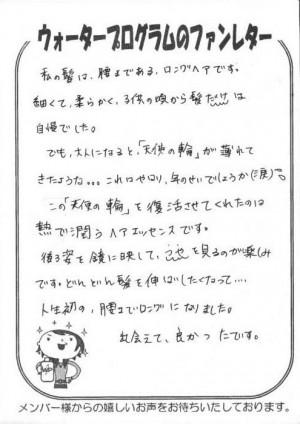 ウォータープログラムのファンレター
私の髪は、腰まである、ロングヘアです。
細くて、柔らかく、子供の頃から髪だけは
自慢でした。
でも、大人になると、「天使の輪」が薄れて
きたような… これはやはり、年のせいでしょうか(涙)
この「天使の輪」を復活させてくれたのは
熱で潤うヘアエッセンスです。
後ろ姿を鏡に映して、つやを見るのが楽しみ
です。どんどん髪を伸ばしたくなって…
人生初の、腰までロングになりました。
出会えて、良かったです。
メンバー様からの嬉しいお声をお待ちいたしております。